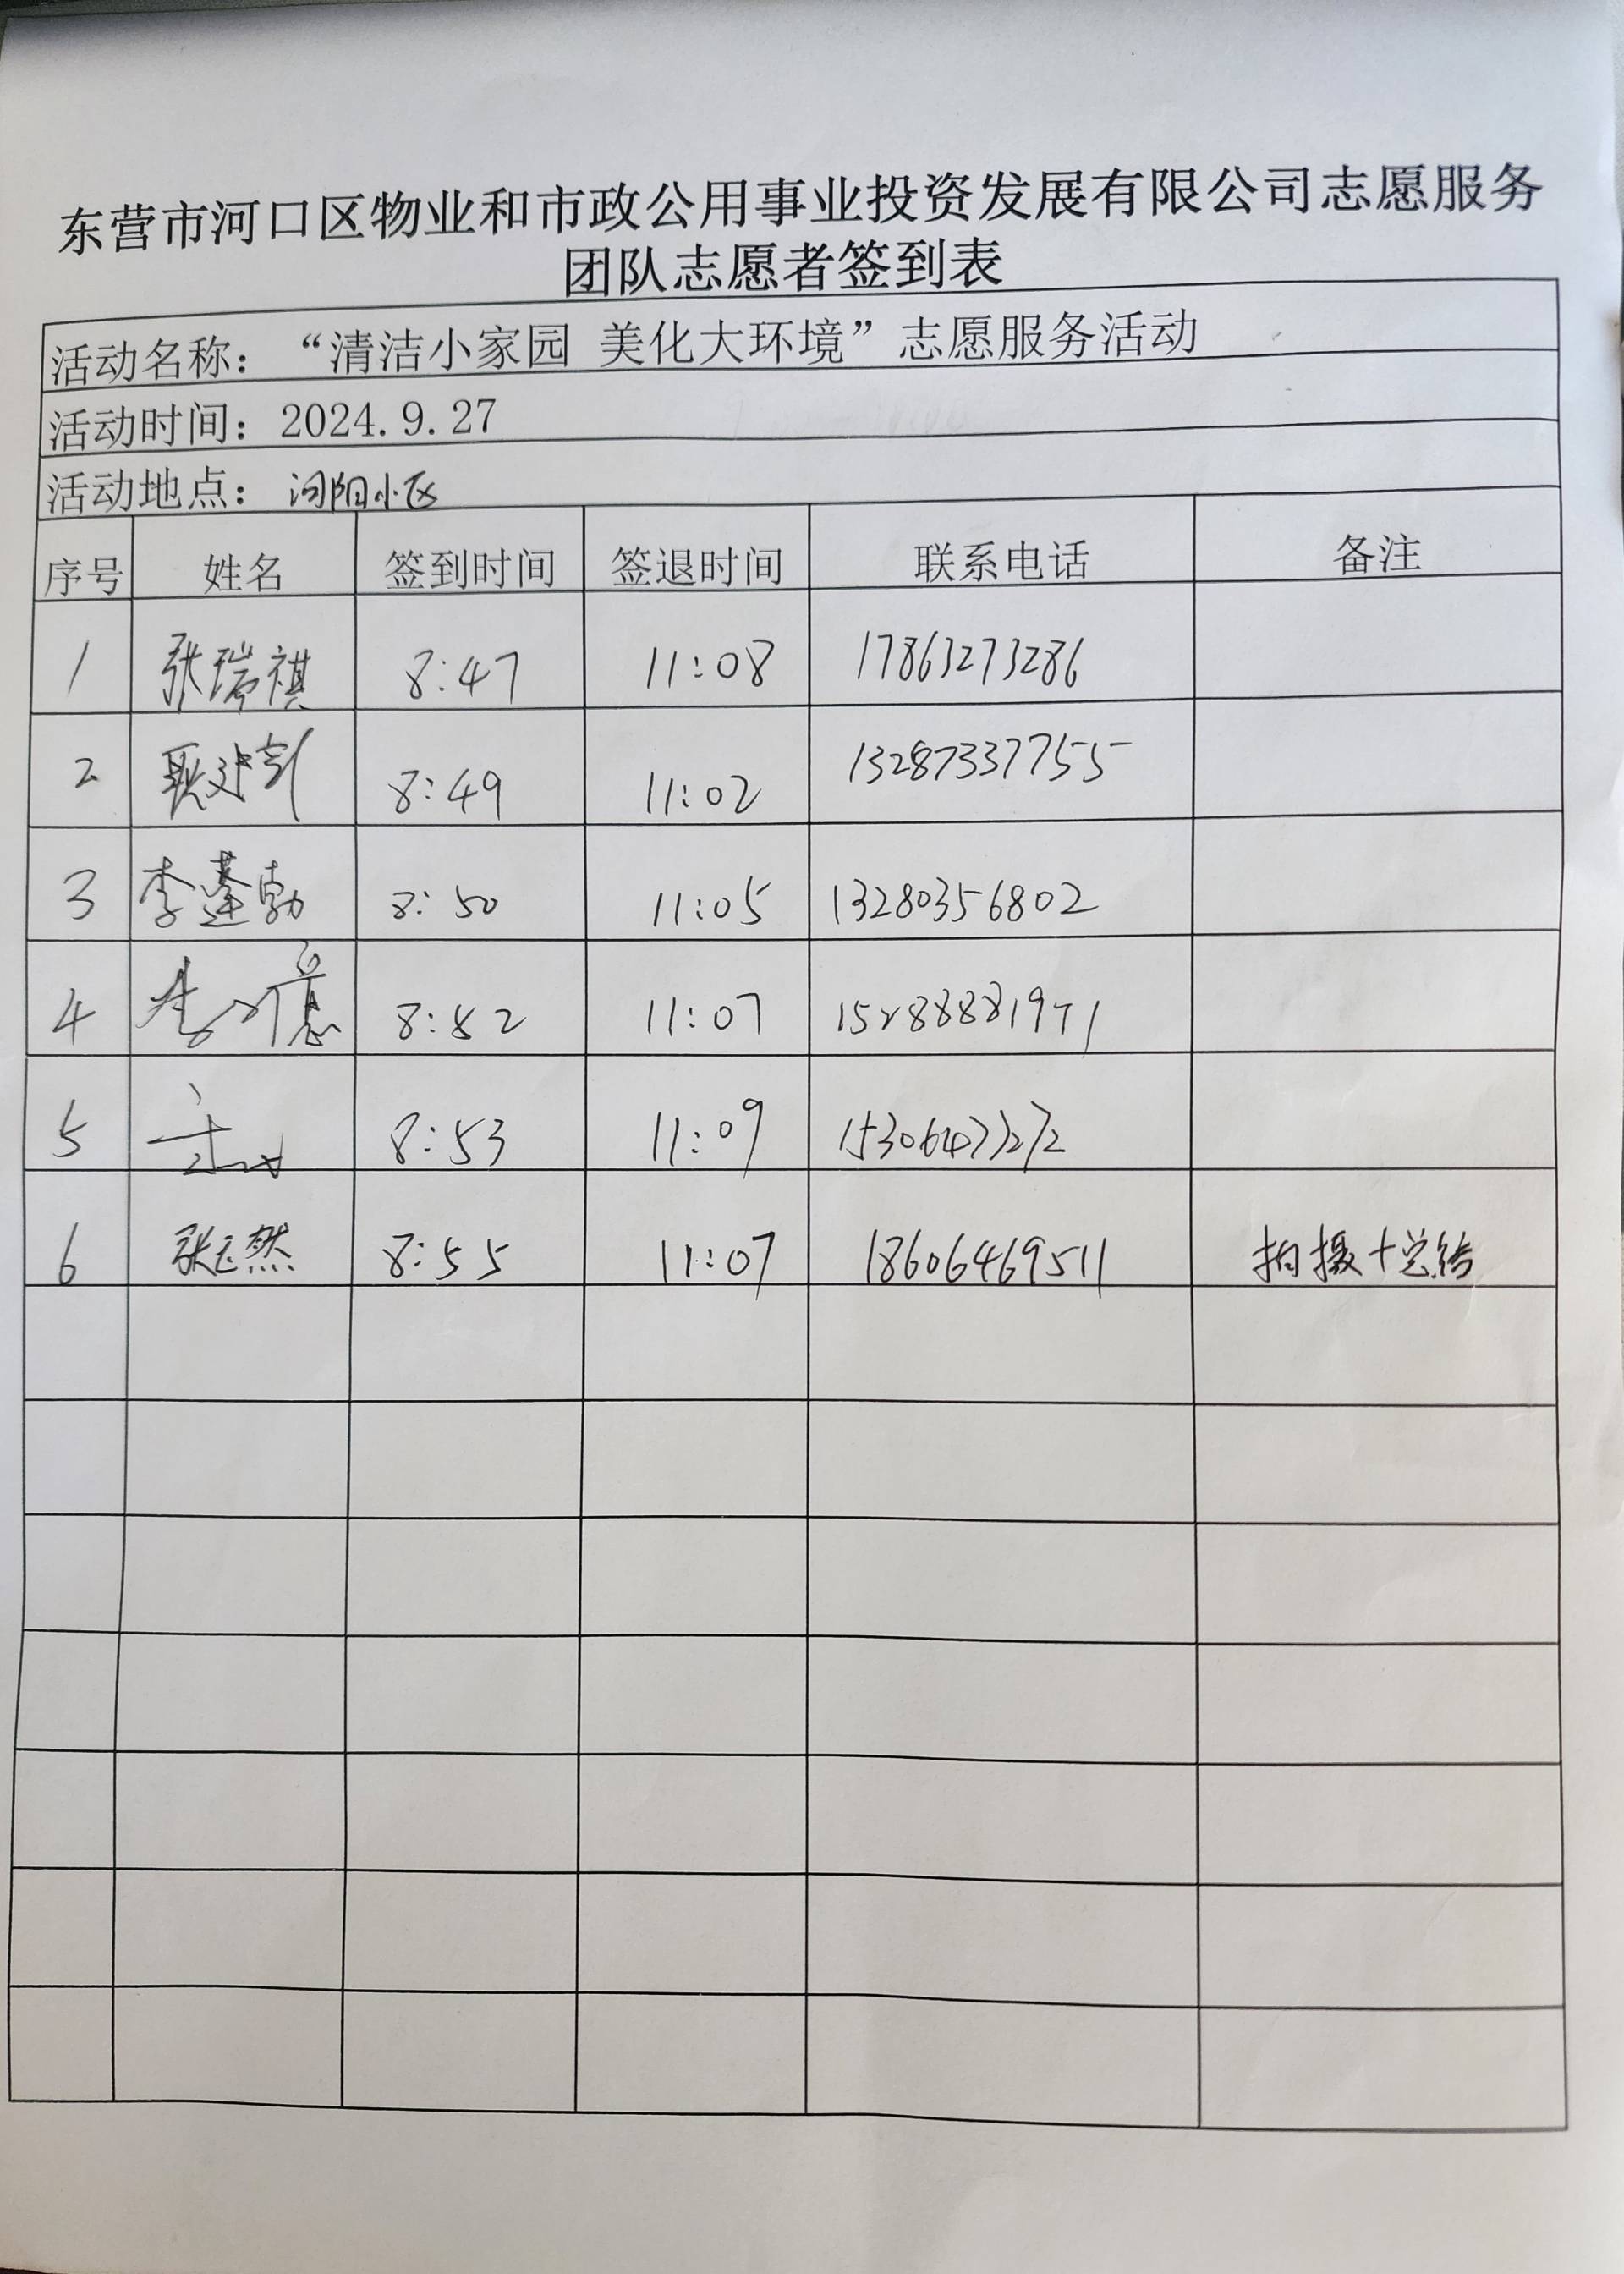 东营市河口区物业和市政公用事业投资发展有限公司志愿服务
团队志愿者签到表
活动名称：“清洁小家园 美化大环境”志愿服务活动
活动时间：2024.9.27
活动地点：河阳小区
序号 姓名 签到时间 签退时间 联系电话 备注
1 张瑞祺 8:47 11:08 17863273286
2 8:49 11:02 13287337755
3 李蓬勃 8:50 11:05 13280356802
4 8:52 11:07
5 8:53 11:09
6 张玉然 8:55 11:07 18606469511 拍摄+总结